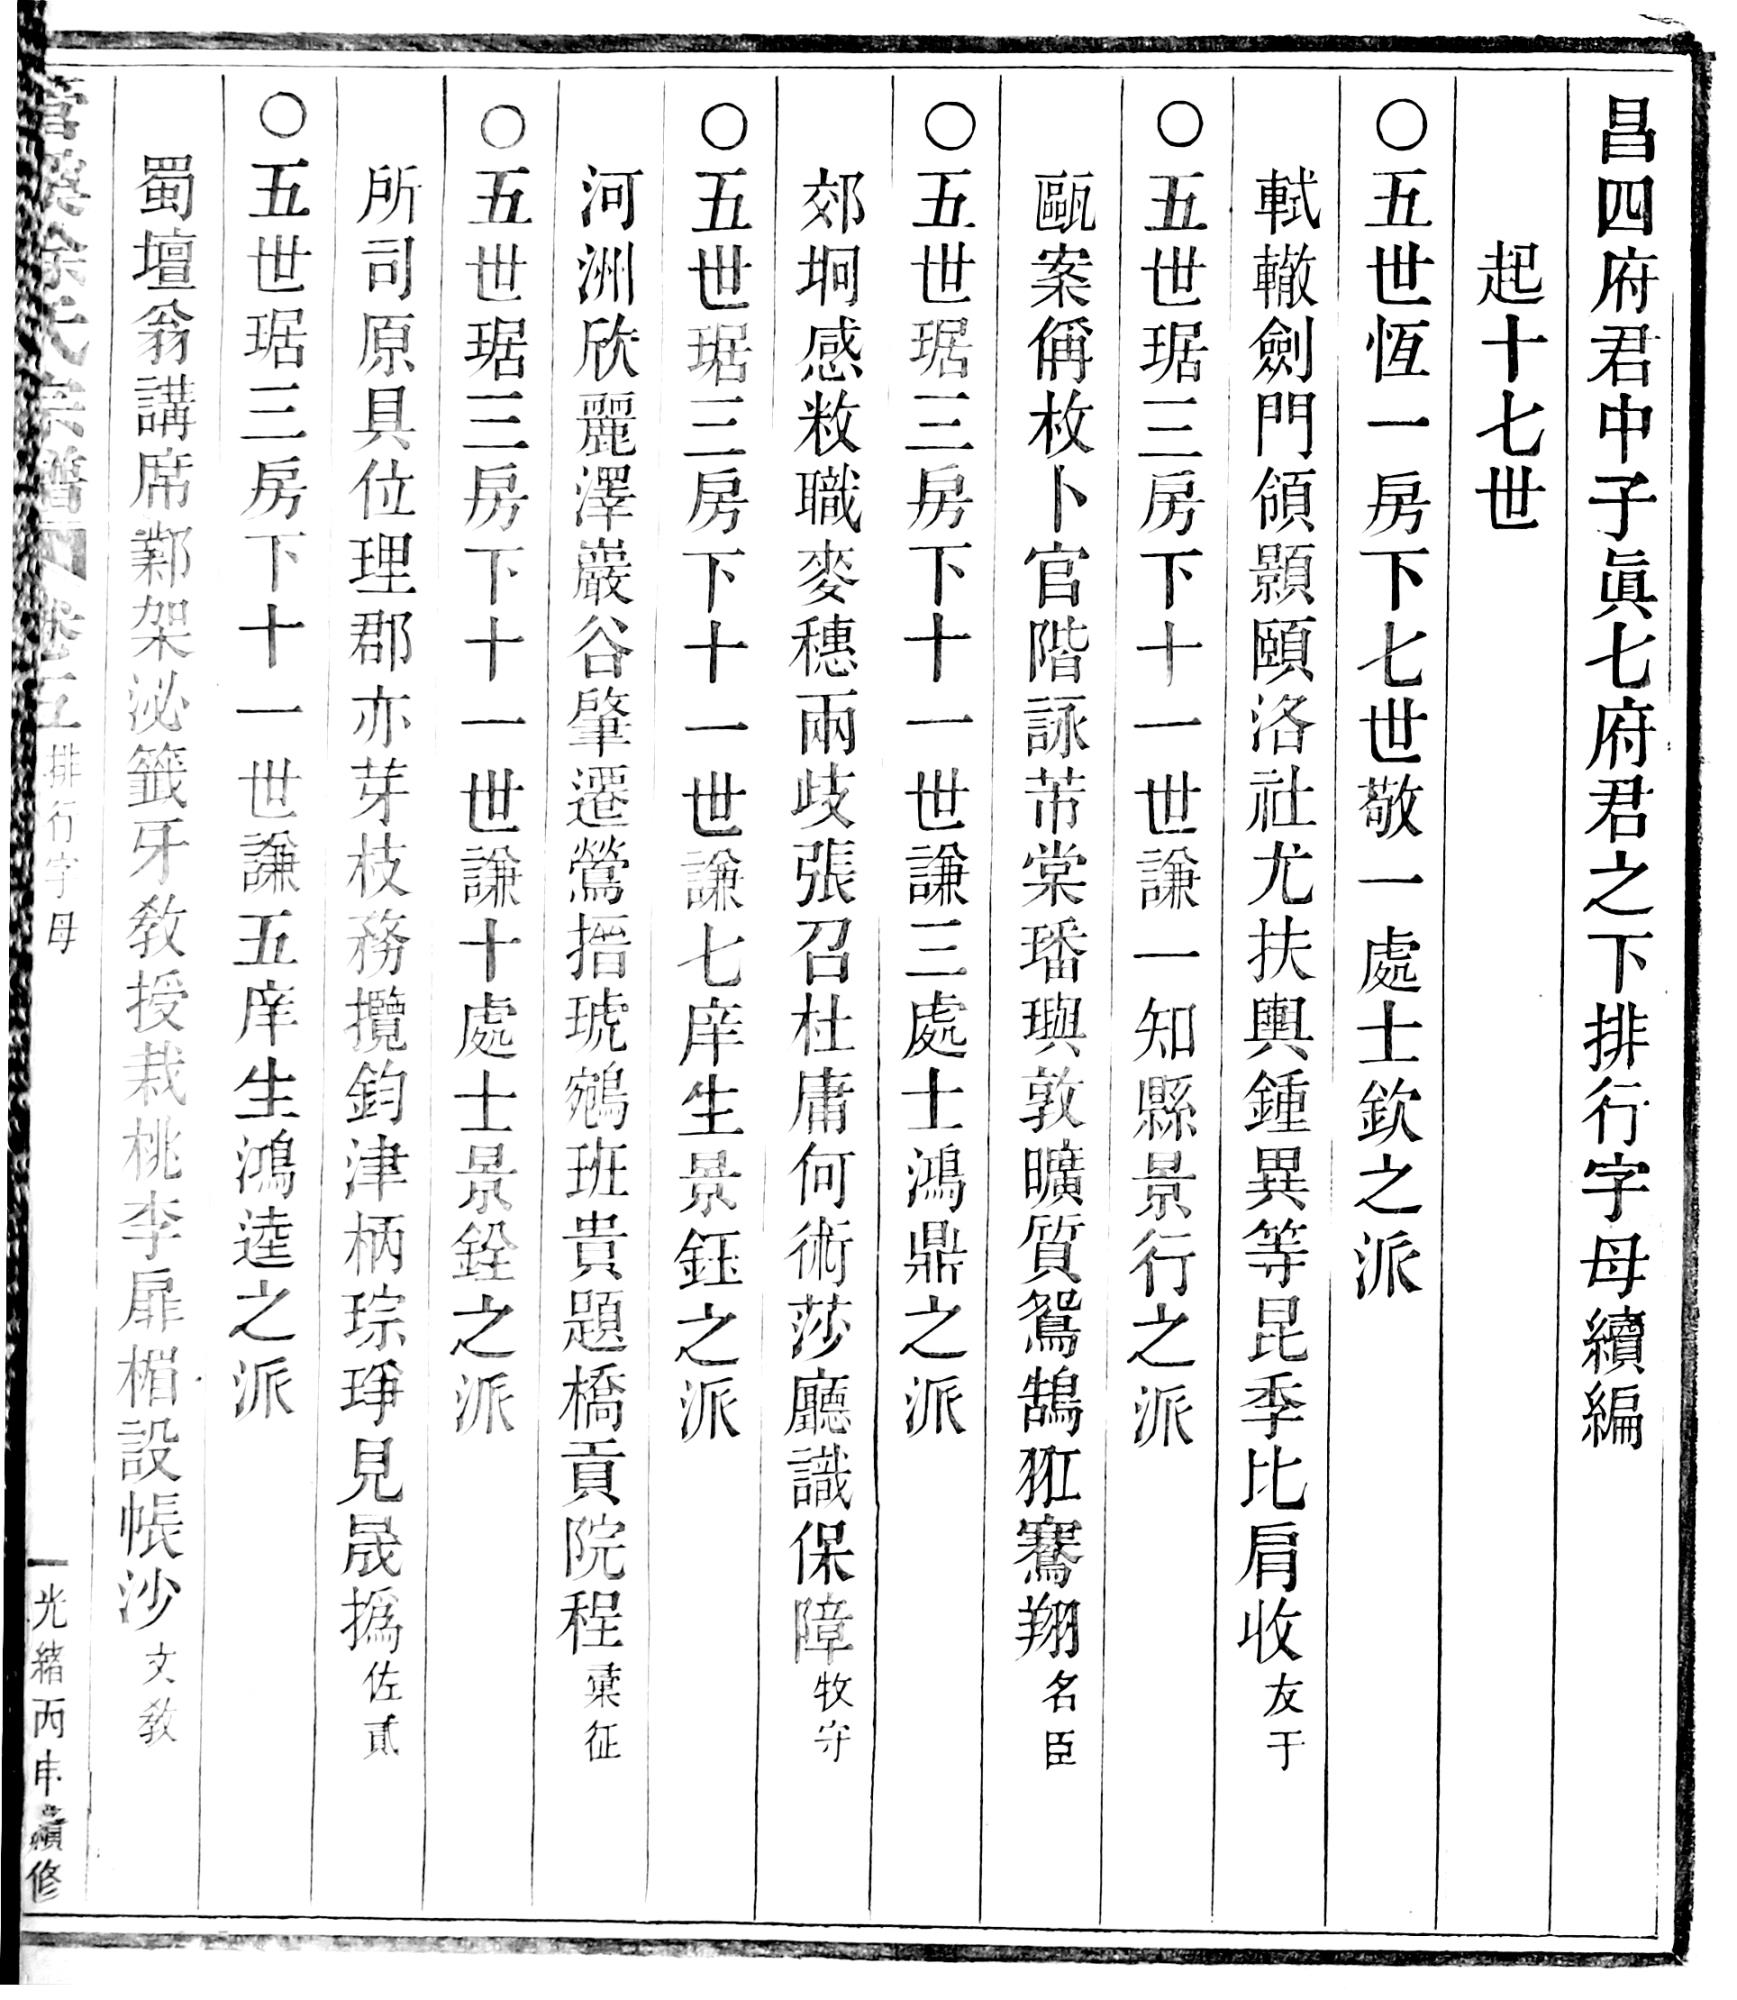 昌四府君中子眞七府君之下排行字母續編
起十七世
○五世恆一房下七世敬一處士欽之派
軾轍劍門頜顥頤洛社尤扶輿鍾異等昆季比肩收友于
○五世琚三房下十一世謙一知縣景行之派
甌案偁枚卜官階詠芾棠璠璵敦曠質鴛鵠㹨騫翔名臣
○五世琚三房下十一世謙三處士鴻鼎之派
郊坰感敉職麥穗兩歧張召杜庸何術莎廳識保障牧守
○五世琚三房下十一世謙七庠生景鈺之派
河洲欣麗澤巖谷肇遷鶯搢琥鵷班貴題橋貢院程彙征
○五世琚三房下十一世謙十處士景銓之派
所司原具位理郡亦芽枝務攬鈞津柄琮琤見晟撝佐貳
○五世琚三房下十一世謙五庠生鴻逵之派
蜀壇翁講席鄴架泌籤牙敎授栽桃李扉楣設帳沙文敎
徐氏宗譜 卷五 排行字母 一 光緒丙申續修